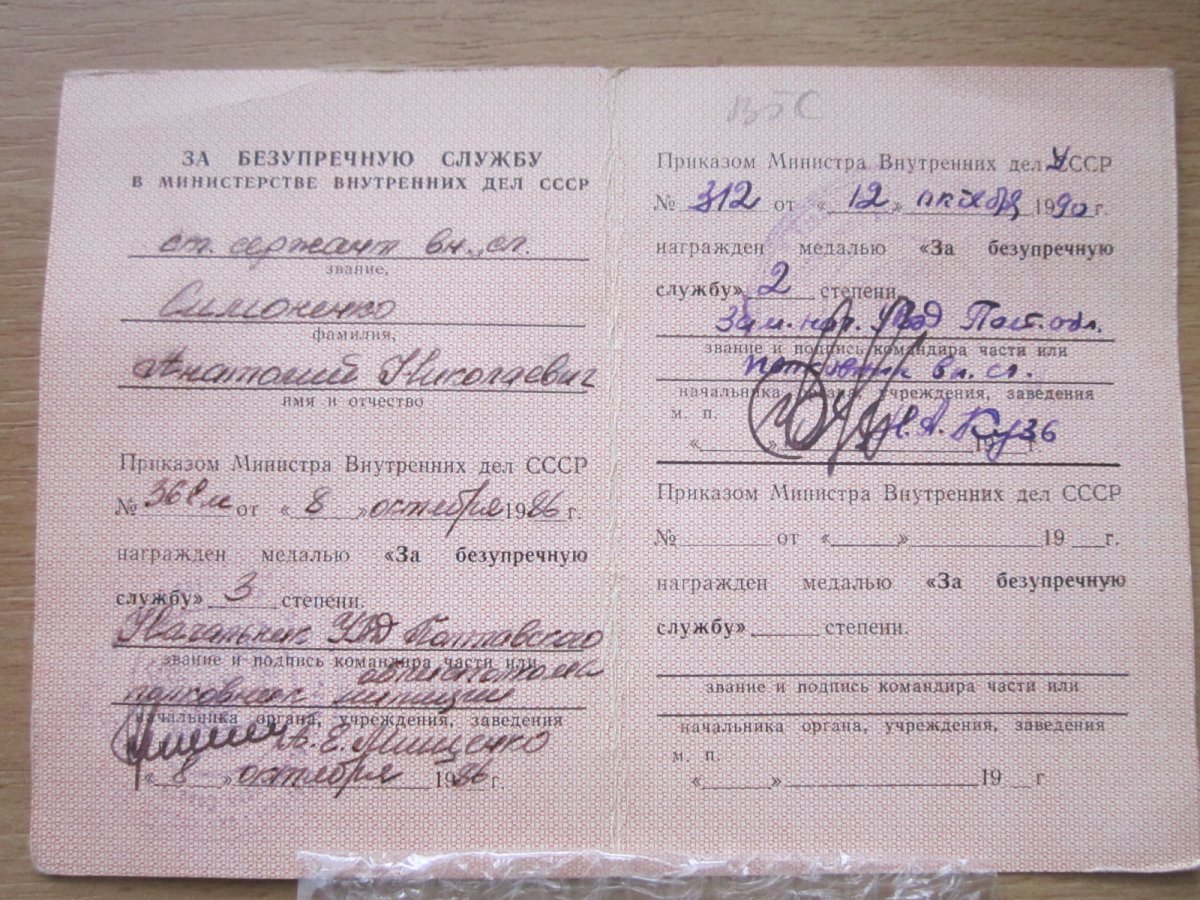 ЗА БЕЗУПРЕЧНУЮ СЛУЖБУ
В МИНИСТЕРСТВЕ ВНУТРЕННИХ ДЕЛ СССР
ст. сержант вн. сл.
звание,
Симоненко
фамилия,
Анатолий Николаевич
имя и отчество
Приказом Министра Внутренних дел СССР
№ 368 от «8» октября 1986 г.
награжден медалью «За безупречную
службу» 3 степени.
Начальник УВД Полтавского
звание и подпись командира части или
облисполкома
полковник милиции
начальника органа, учреждения, заведения
А. Е. Мищенко
«8» октября 1986 г.
Приказом Министра Внутренних дел УССР
№ 312 от «12» октября 1990 г.
награжден медалью «За безупречную
службу» 2 степени.
Зам. нач. УВД Полт. обл.
звание и подпись командира части или
полковник вн. сл.
начальника органа, учреждения, заведения
м. п.
« » 19 г.
Приказом Министра Внутренних дел СССР
№ от « » 19 г.
награжден медалью «За безупречную
службу» степени.
звание и подпись командира части или
начальника органа, учреждения, заведения
м. п.
« » 19 г